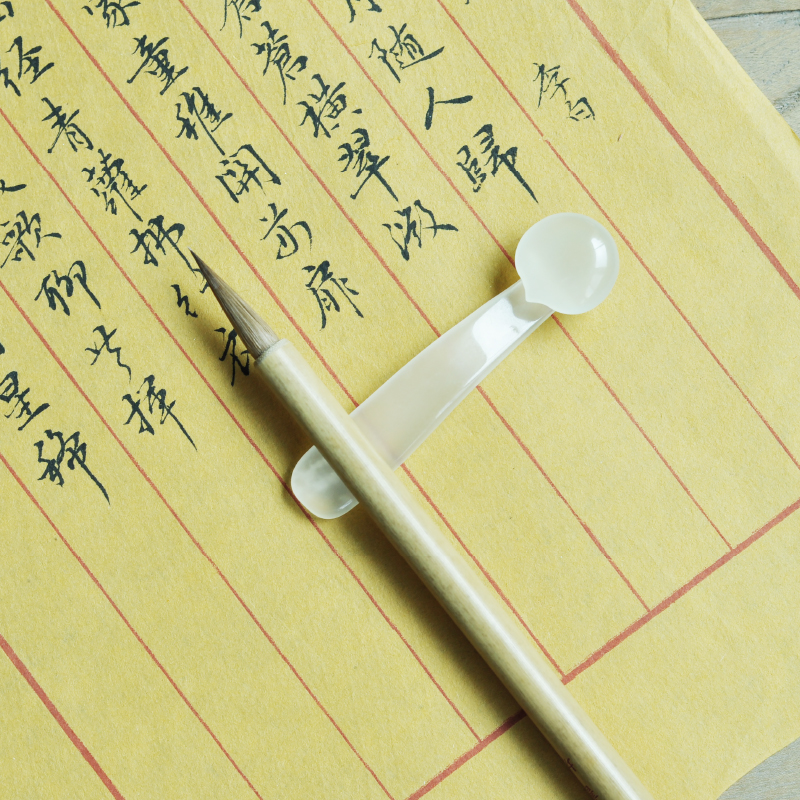 李白
月隨人歸
蒼蒼橫翠微
家童稚開荊扉
徑青蘿拂行衣
歌聊共揮
星稀